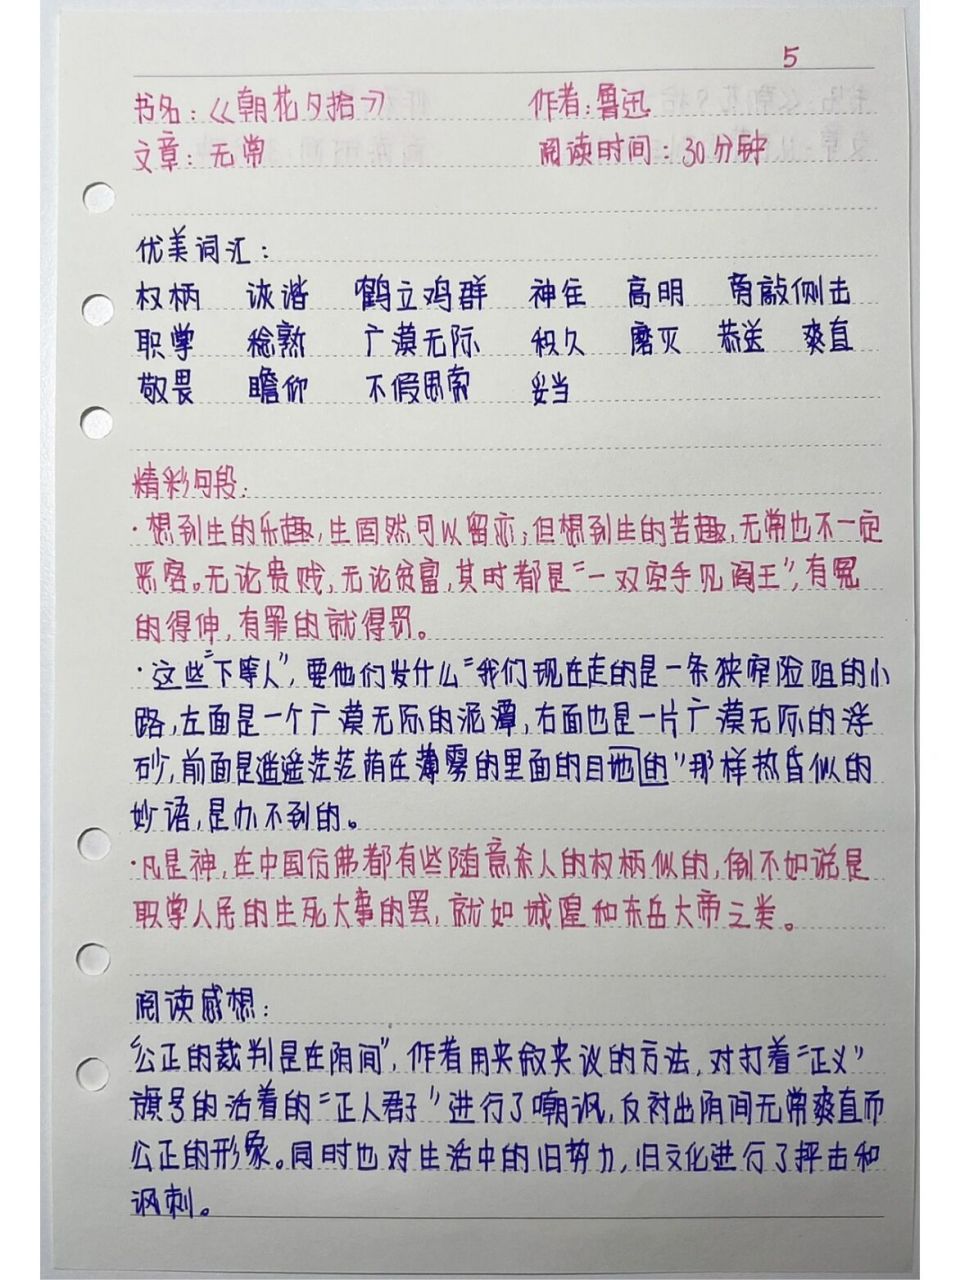 5
书名:《朝花夕拾》 作者:鲁迅
文章:无常 阅读时间:30分钟
优美词汇:
权柄 诙谐 鹤立鸡群 神往 高明 旁敲侧击
职掌 稔熟 广漠无际 积久 磨灭 恭送 爽直
敬畏 瞻仰 不假思索 妥当
精彩句段:
·想到生的乐趣,生固然可以留恋;但想到生的苦趣,无常也不一定
恶客。无论贵贱,无论贫富,其时都是“一双空手见阎王”,有冤
的得伸,有罪的就得罚。
·这些“下等人”,要他们发什么“我们现在走的是一条狭窄险阻的小
路,左面是一个广漠无际的泥潭,右面也是一片广漠无际的浮
砂,前面是遥遥茫茫荫在薄雾的里面的目地的”那样热昏似的
妙语,是办不到的。
·凡是神,在中国仿佛都有些随意杀人的权柄似的,倒不如说是
职掌人民的生死大事的罢,就如城隍和东岳大帝之类。
阅读感想:
“公正的裁判是在阴间”,作者用夹叙夹议的方法,对打着“正义”
旗号的活着的“正人君子”进行了嘲讽,反衬出阴间无常爽直而
公正的形象。同时也对生活中的旧势力,旧文化进行了抨击和
讽刺。